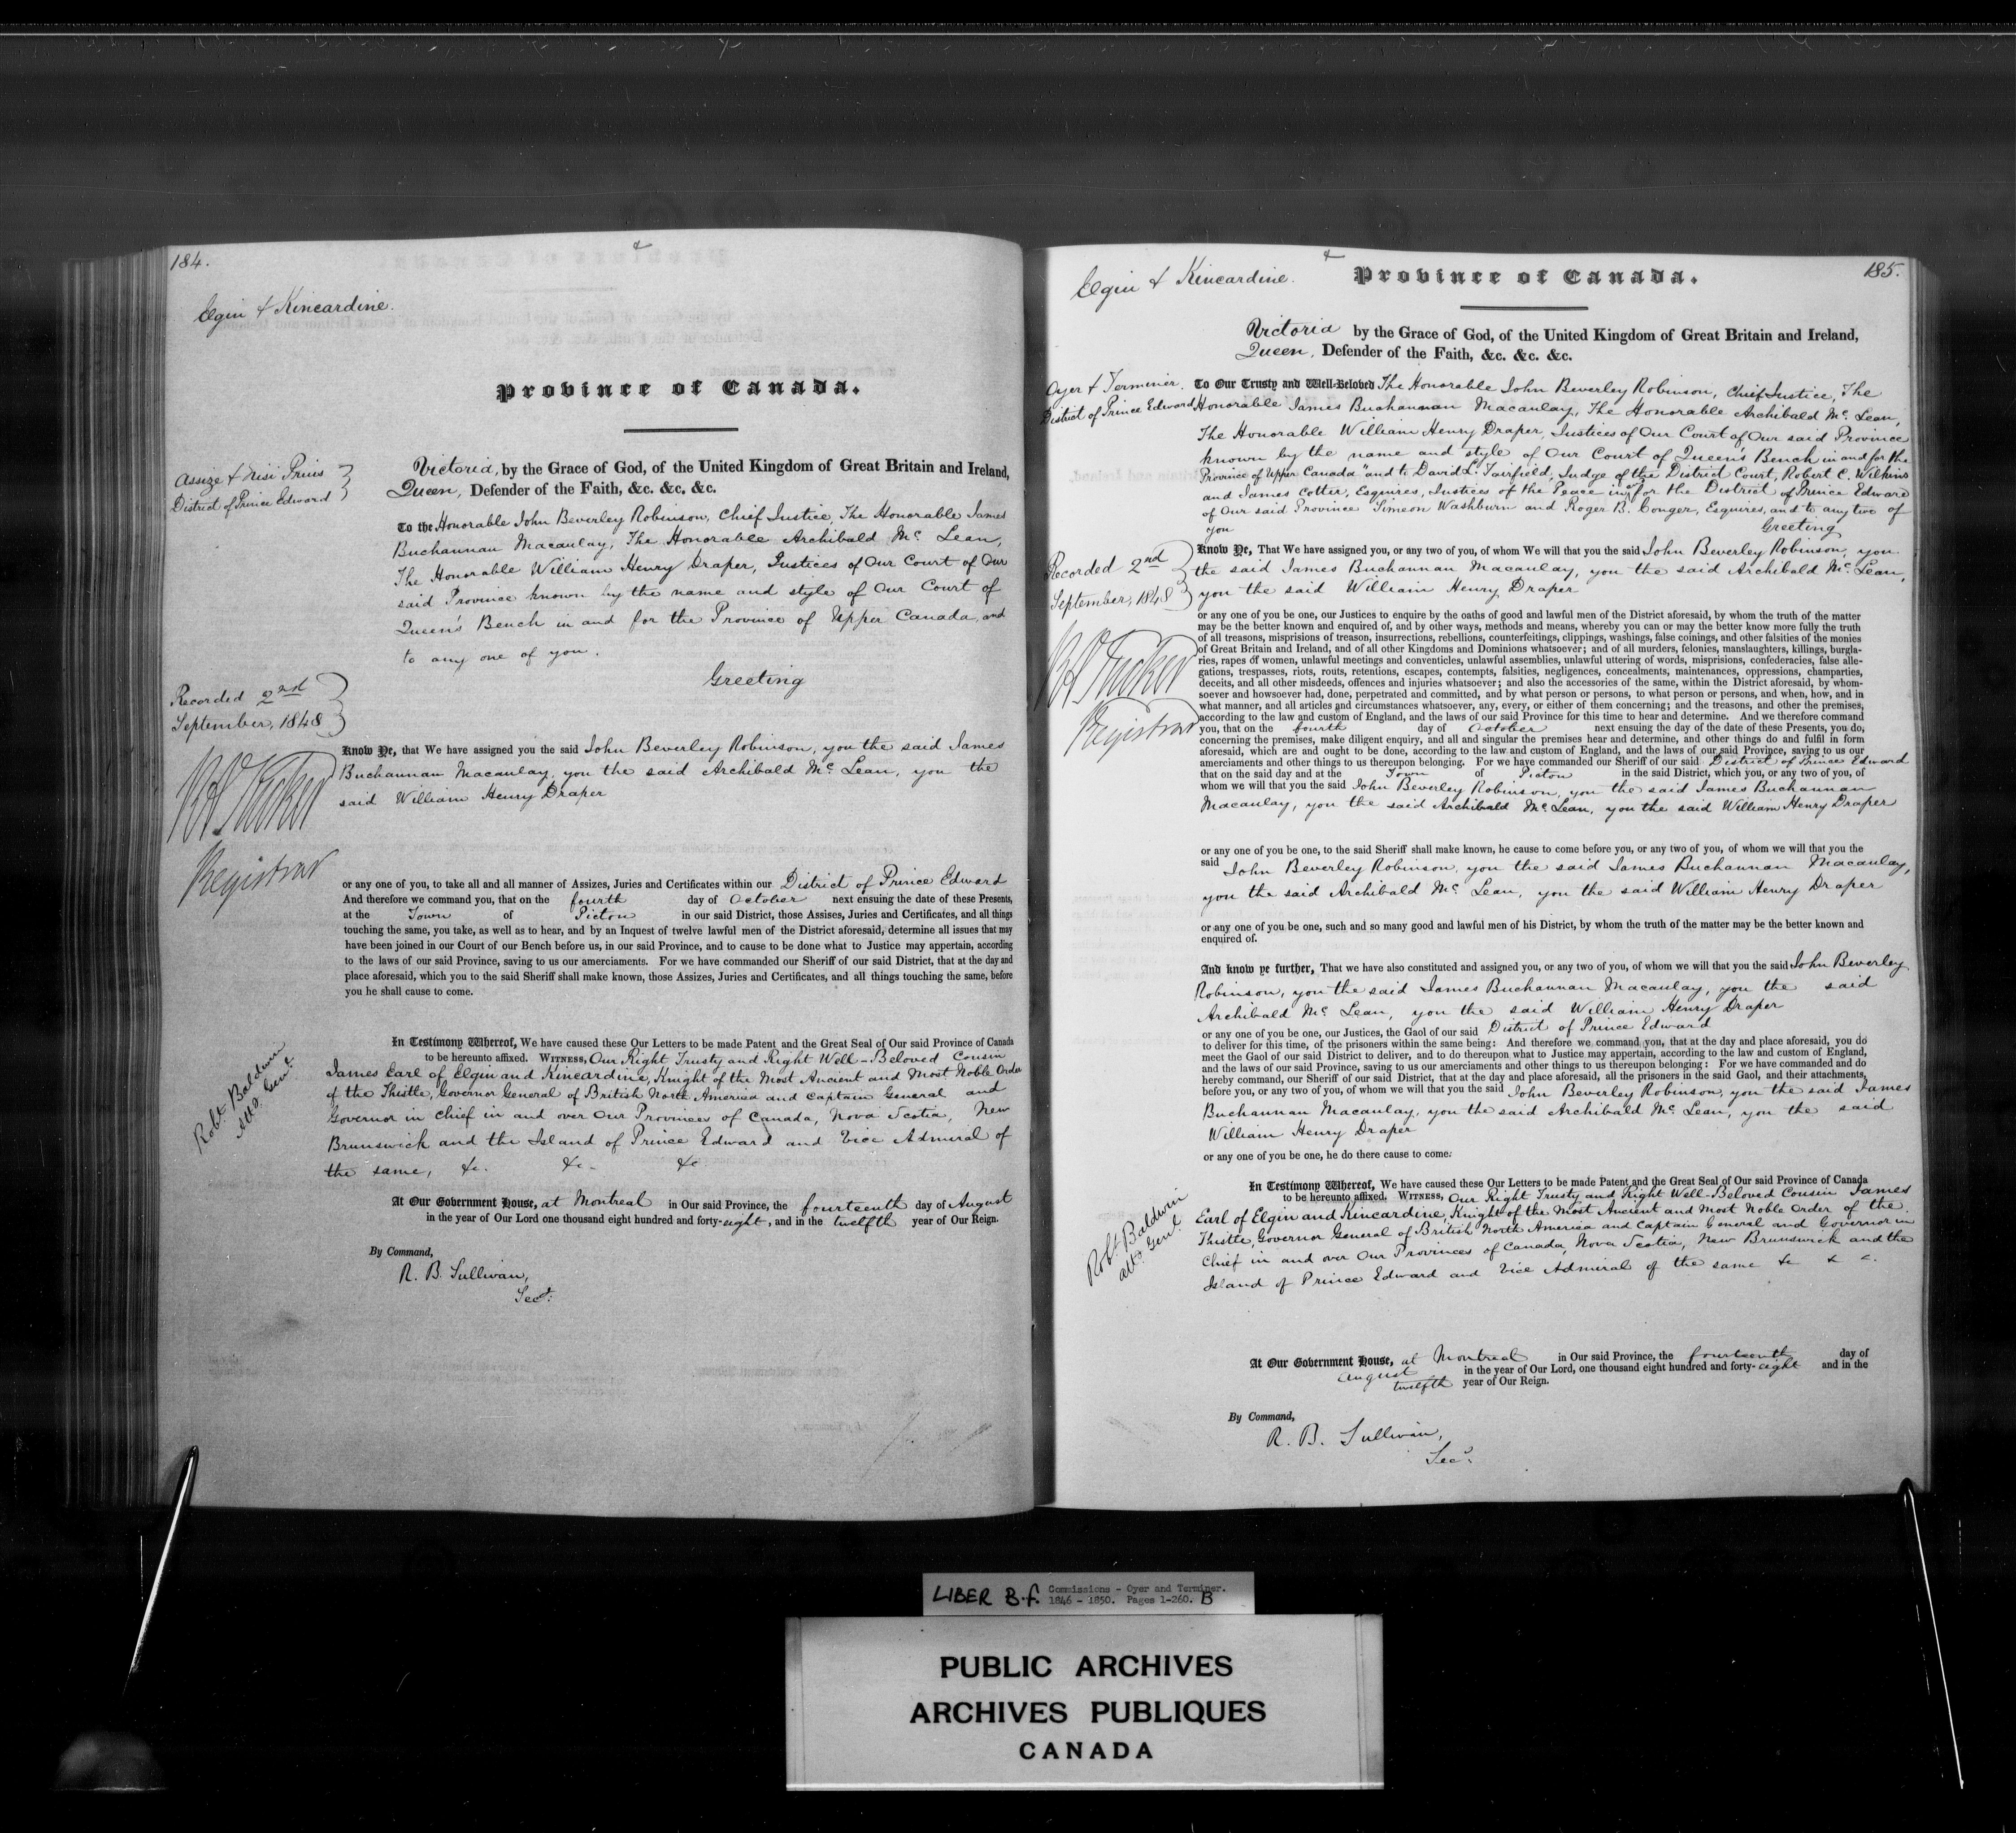 184.
Elgin & Kincardine.
Province of Canada.
Assize & Nisi Prius
District of Prince Edward
Victoria, by the Grace of God, of the United Kingdom of Great Britain and Ireland,
Queen, Defender of the Faith, &c. &c. &c.
To the Honorable John Beverley Robinson, Chief Justice, The Honorable James
Buchannan Macaulay, The Honorable Archibald Mc. Lean,
The Honorable William Henry Draper, Justices of Our Court of Our
said Province known by the name and style of Our Court of
Queen's Bench in and for the Province of Upper Canada, and
to any one of you.
Greeting
Recorded 2nd
September, 1848
Know Ye, that We have assigned you the said John Beverley Robinson, you the said James
Buchannan Macaulay, you the said Archibald Mc. Lean, you the
said William Henry Draper
Tucker
Registrar
or any one of you, to take all and all manner of Assizes, Juries and Certificates within our District of Prince Edward
And therefore we command you, that on the fourth day of October next ensuing the date of these Presents,
at the Town of Picton in our said District, those Assises, Juries and Certificates, and all things
touching the same, you take, as well as to hear, and by an Inquest of twelve lawful men of the District aforesaid, determine all issues that may
have been joined in our Court of our Bench before us, in our said Province, and to cause to be done what to Justice may appertain, according
to the laws of our said Province, saving to us our amerciaments. For we have commanded our Sheriff of our said District, that at the day and
place aforesaid, which you to the said Sheriff shall make known, those Assizes, Juries and Certificates, and all things touching the same, before
you he shall cause to come.
Robt. Baldwin
Atty. Genl.
In Testimony Whereof, We have caused these Our Letters to be made Patent and the Great Seal of Our said Province of Canada
to be hereunto affixed. Witness, Our Right Trusty and Right Well-Beloved Cousin
James Earl of Elgin and Kincardine, Knight of the Most Ancient and Most Noble Order
of the Thistle, Governor General of British North America and Captain General and
Governor in Chief in and over Our Provinces of Canada, Nova Scotia, New
Brunswick and the Island of Prince Edward and Vice Admiral of
the same, &c. &c. &c.
At Our Government House, at Montreal in Our said Province, the fourteenth day of August
in the year of Our Lord one thousand eight hundred and forty-eight, and in the twelfth year of Our Reign.
By Command,
R. B. Sullivan,
Secy.
185.
Elgin & Kincardine.
Province of Canada.
Victoria by the Grace of God, of the United Kingdom of Great Britain and Ireland,
Queen, Defender of the Faith, &c. &c. &c.
Oyer & Terminer.
District of Prince Edward
To Our Trusty and Well-Beloved The Honorable John Beverley Robinson, Chief Justice, The
Honorable James Buchannan Macaulay, The Honorable Archibald Mc. Lean,
The Honorable William Henry Draper, Justices of Our Court of Our said Province
known by the name and style of Our Court of Queen's Bench in and for the
Province of Upper Canada "and to David L. Fairfield, Judge of the District Court, Robert C. Wilkins
and James Cotter, Esquires, Justices of the Peace in & for the District of Prince Edward
of Our said Province Simeon Washburn and Roger B. Conger, Esquires, and to any two of
you Greeting
Recorded 2nd
September, 1848
Know Ye, That We have assigned you, or any two of you, of whom We will that you the said John Beverley Robinson, you
the said James Buchannan Macaulay, you the said Archibald Mc. Lean,
you the said William Henry Draper
Tucker
Registrar
or any one of you be one, our Justices to enquire by the oaths of good and lawful men of the District aforesaid, by whom the truth of the matter
may be the better known and enquired of, and by other ways, methods and means, whereby you can or may the better know more fully the truth
of all treasons, misprisions of treason, insurrections, rebellions, counterfeitings, clippings, washings, false coinings, and other falsities of the monies
of Great Britain and Ireland, and of all other Kingdoms and Dominions whatsoever; and of all murders, felonies, manslaughters, killings, burgla-
ries, rapes of women, unlawful meetings and conventicles, unlawful assemblies, unlawful uttering of words, misprisions, confederacies, false alle-
gations, trespasses, riots, routs, retentions, escapes, contempts, falsities, negligences, concealments, maintenances, oppressions, champarties,
deceits, and all other misdeeds, offences and injuries whatsoever; and also the accessories of the same, within the District aforesaid, by whom-
soever and howsoever had, done, perpetrated and committed, and by what person or persons, to what person or persons, and when, how, and in
what manner, and all articles and circumstances whatsoever, any, every, or either of them concerning; and the treasons, and other the premises,
according to the law and custom of England, and the laws of our said Province for this time to hear and determine. And we therefore command
you, that on the fourth day of October next ensuing the day of the date of these Presents, you do,
concerning the premises, make diligent enquiry, and all and singular the premises hear and determine, and other things do and fulfil in form
aforesaid, which are and ought to be done, according to the law and custom of England, and the laws of our said Province, saving to us our
amerciaments and other things to us thereupon belonging. For we have commanded our Sheriff of our said District of Prince Edward
that on the said day and at the Town of Picton in the said District, which you, or any two of you, of
whom we will that you the said John Beverley Robinson, you the said James Buchannan
Macaulay, you the said Archibald Mc. Lean, you the said William Henry Draper
or any one of you be one, to the said Sheriff shall make known, he cause to come before you, or any two of you, of whom we will that you the
said John Beverley Robinson, you the said James Buchannan Macaulay,
you the said Archibald Mc. Lean, you the said William Henry Draper
or any one of you be one, such and so many good and lawful men of his District, by whom the truth of the matter may be the better known and
enquired of.
And know ye further, That we have also constituted and assigned you, or any two of you, of whom we will that you the said John Beverley
Robinson, you the said James Buchannan Macaulay, you the said
Archibald Mc. Lean, you the said William Henry Draper
or any one of you be one, our Justices, the Gaol of our said District of Prince Edward
to deliver for this time, of the prisoners within the same being: And therefore we command you, that at the day and place aforesaid, you do
meet the Gaol of our said District to deliver, and to do thereupon what to Justice may appertain, according to the law and custom of England,
and the laws of our said Province, saving to us our amerciaments and other things to us thereupon belonging: For we have commanded and do
hereby command, our Sheriff of our said District, that at the day and place aforesaid, all the prisoners in the said Gaol, and their attachments,
before you, or any two of you, of whom we will that you the said John Beverley Robinson, you the said James
Buchannan Macaulay, you the said Archibald Mc. Lean, you the said
William Henry Draper
or any one of you be one, he do there cause to come.
Robt. Baldwin
Atty. Genl.
In Testimony Whereof, We have caused these Our Letters to be made Patent and the Great Seal of Our said Province of Canada
to be hereunto affixed. Witness, Our Right Trusty and Right Well-Beloved Cousin James
Earl of Elgin and Kincardine Knight of the Most Ancient and Most Noble Order of the
Thistle, Governor General of British North America and Captain General and Governor in
Chief in and over Our Provinces of Canada, Nova Scotia, New Brunswick and the
Island of Prince Edward and Vice Admiral of the same &c & c.
At Our Government House, at Montreal in Our said Province, the fourteenth day of
August in the year of Our Lord, one thousand eight hundred and forty-eight and in the
twelfth year of Our Reign.
By Command,
R. B. Sullivan,
Secy.
LIBER B.f. Commissions - Oyer and Terminer.
1846 - 1850. Pages 1-260. B
PUBLIC ARCHIVES
ARCHIVES PUBLIQUES
CANADA